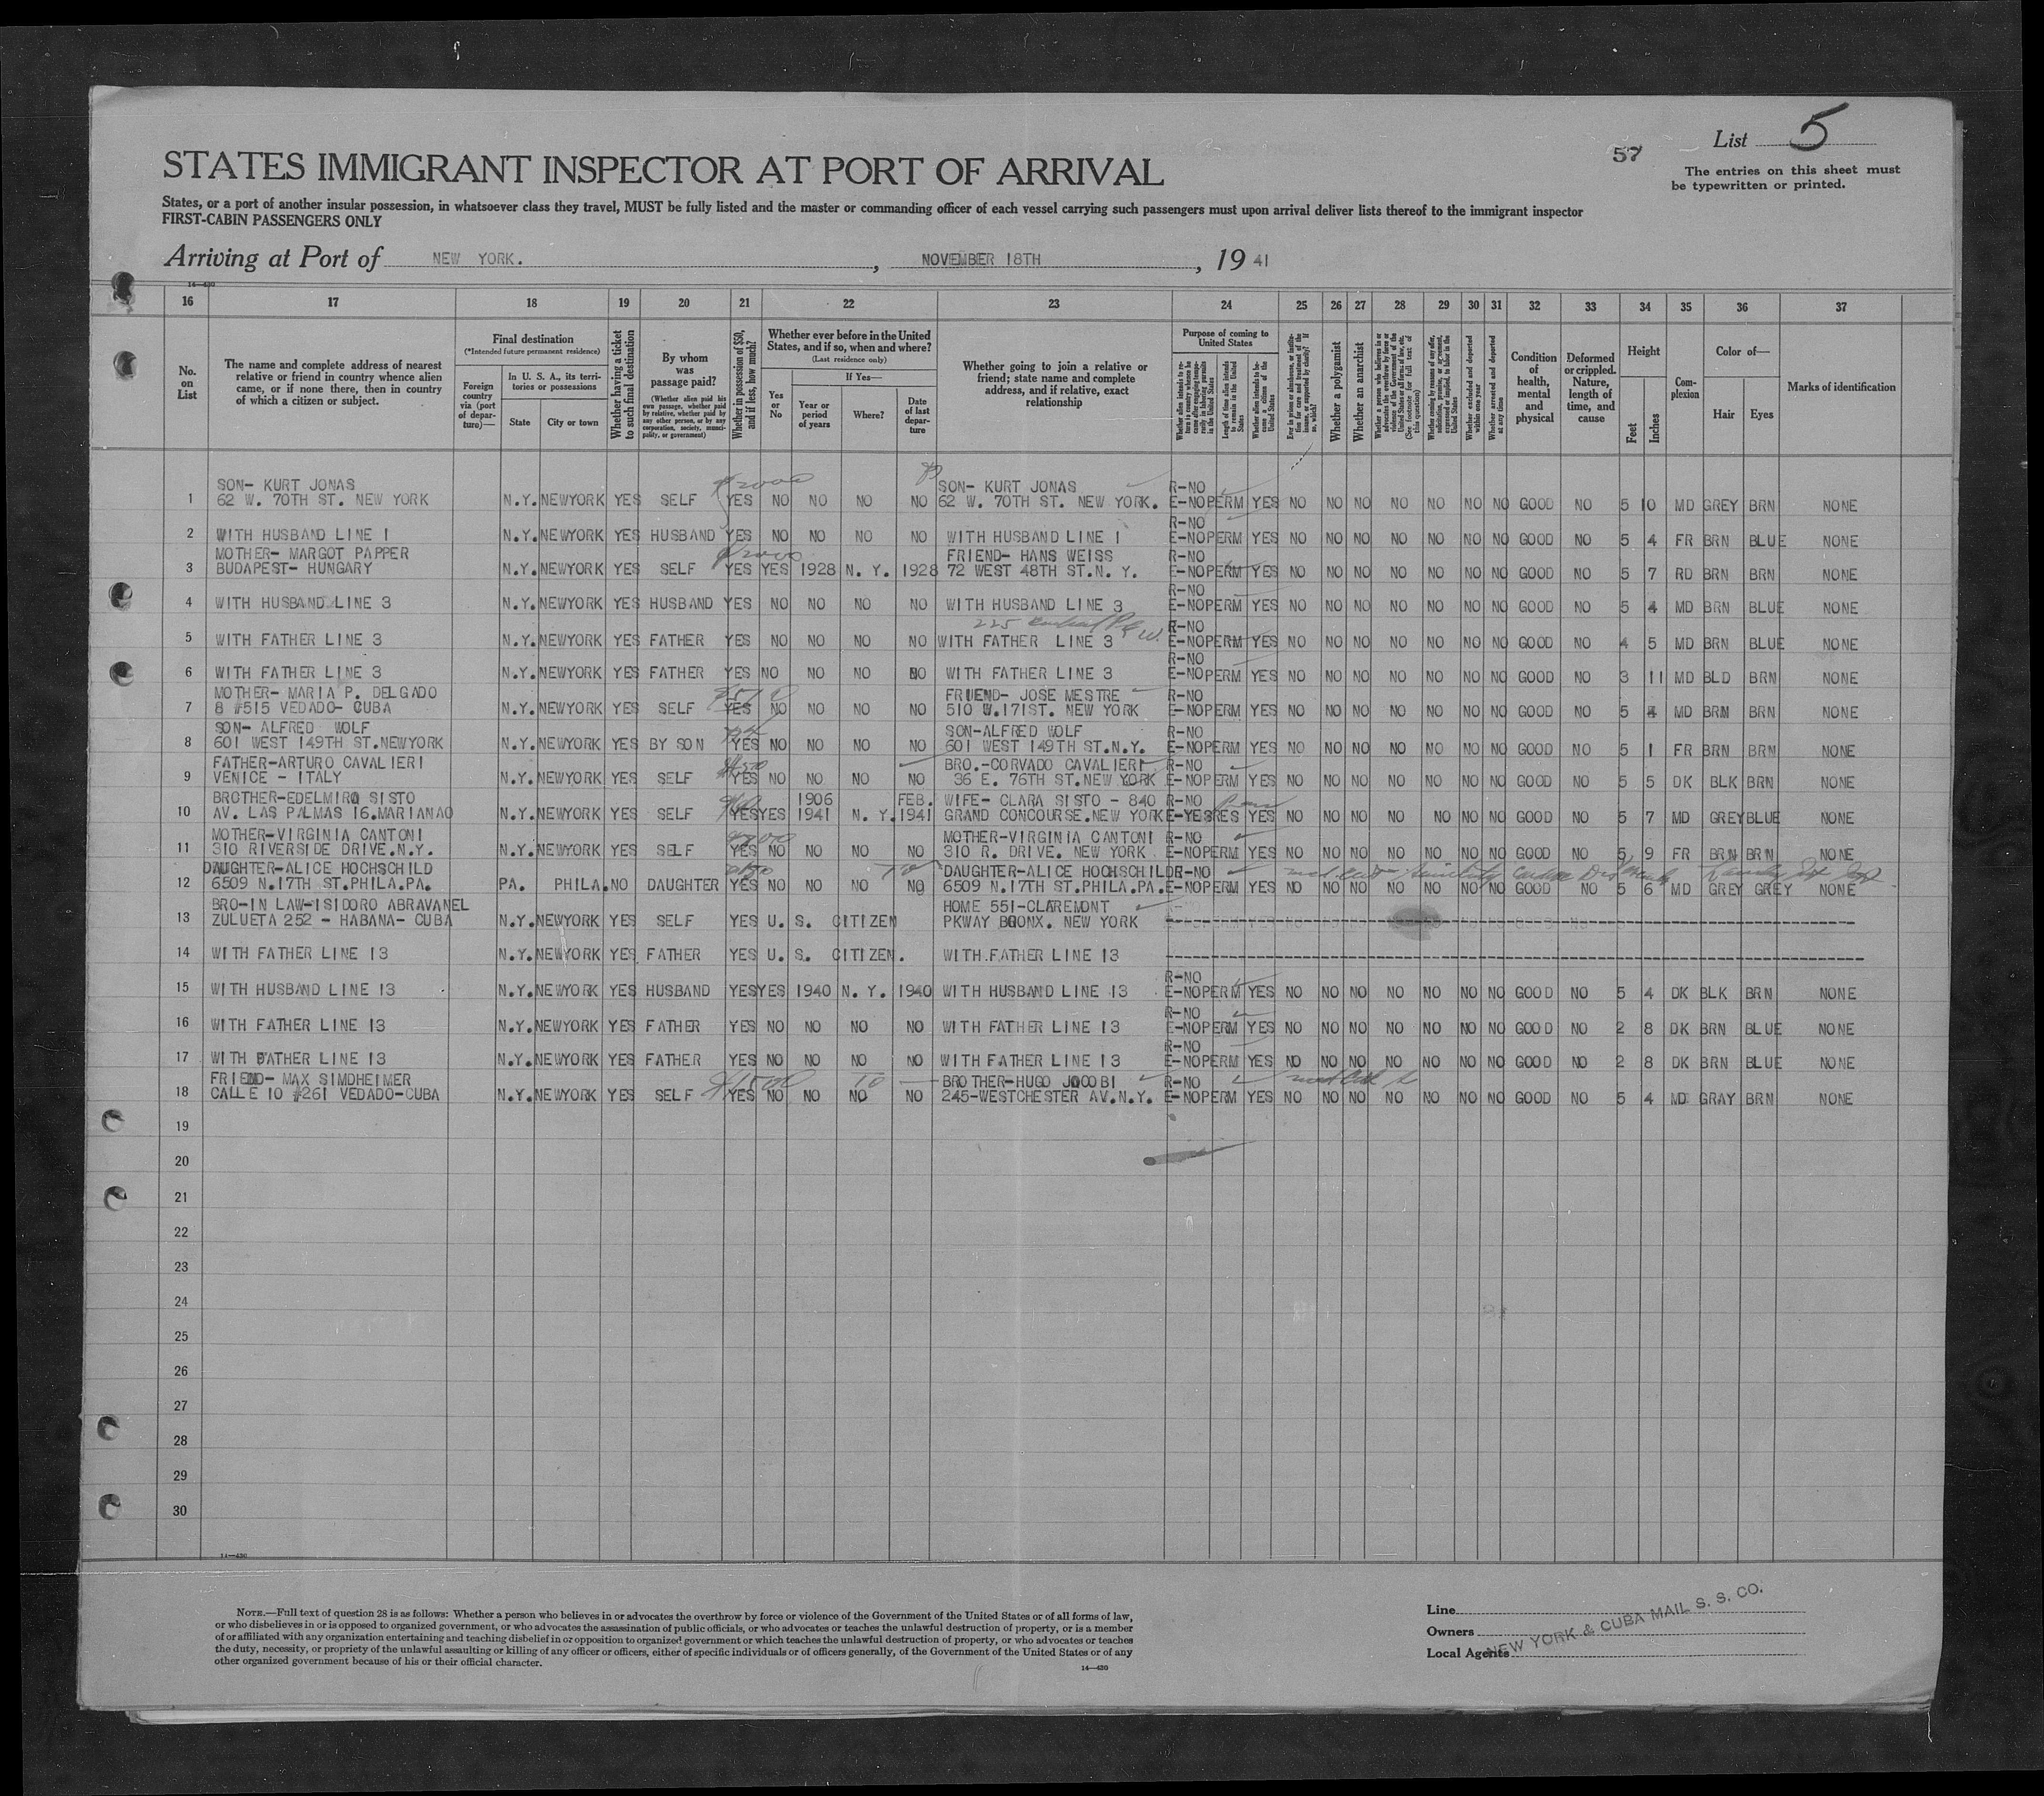 57
List 5
STATES IMMIGRANT INSPECTOR AT PORT OF ARRIVAL
The entries on this sheet must
be typewritten or printed.
States, or a port of another insular possession, in whatsoever class they travel, MUST be fully listed and the master or commanding officer of each vessel carrying such passengers must upon arrival deliver lists thereof to the immigrant inspector
FIRST-CABIN PASSENGERS ONLY
Arriving at Port of NEW YORK. , NOVEMBER 18TH , 19 41
16 17 18 19 20 21 22 23 24 25 26 27 28 29 30 31 32 33 34 35 36 37
No. on List
The name and complete address of nearest relative or friend in country whence alien came, or if none there, then in country of which a citizen or subject.
Final destination
(*Intended future permanent residence)
Foreign country via (port of departure)—
In U. S. A., its territories or possessions
State
City or town
Whether having a ticket to such final destination
By whom was passage paid?
(Whether alien paid his own passage, whether paid by relative, whether paid by any other person, or by any corporation, society, municipality, or government)
Whether in possession of $50, and if less, how much?
Whether ever before in the United States, and if so, when and where?
(Last residence only)
Yes or No
If Yes—
Year or period of years
Where?
Date of last departure
Whether going to join a relative or friend; state name and complete address, and if relative, exact relationship
Purpose of coming to United States
Length of time alien intends to remain in the United States
Whether alien intends to become a citizen of the United States
Whether a polygamist
Whether an anarchist
Whether excluded and deported within one year
Whether arrested and deported at any time
Condition of health, mental and physical
Deformed or crippled. Nature, length of time, and cause
Height
Feet
Inches
Complexion
Color of—
Hair
Eyes
Marks of identification
SON- KURT JONAS SON- KURT JONAS R-NO
1 62 W. 70TH ST. NEW YORK N.Y. NEWYORK YES SELF YES NO NO NO NO 62 W. 70TH ST. NEW YORK. E-NO PERM YES NO NO NO NO NO NO NO GOOD NO 5 10 MD GREY BRN NONE
R-NO
2 WITH HUSBAND LINE 1 N.Y. NEWYORK YES HUSBAND YES NO NO NO NO WITH HUSBAND LINE 1 E-NO PERM YES NO NO NO NO NO NO NO GOOD NO 5 4 FR BRN BLUE NONE
MOTHER- MARGOT PAPPER FRIEND- HANS WEISS R-NO
3 BUDAPEST- HUNGARY N.Y. NEWYORK YES SELF YES YES 1928 N. Y. 1928 72 WEST 48TH ST.N. Y. E-NO PERM YES NO NO NO NO NO NO NO GOOD NO 5 7 RD BRN BRN NONE
R-NO
4 WITH HUSBAND LINE 3 N.Y. NEWYORK YES HUSBAND YES NO NO NO NO WITH HUSBAND LINE 3 E-NO PERM YES NO NO NO NO NO NO NO GOOD NO 5 4 MD BRN BLUE NONE
225 Central Pk W. R-NO
5 WITH FATHER LINE 3 N.Y. NEWYORK YES FATHER YES NO NO NO NO WITH FATHER LINE 3 E-NO PERM YES NO NO NO NO NO NO NO GOOD NO 4 5 MD BRN BLUE NONE
R-NO
6 WITH FATHER LINE 3 N.Y. NEWYORK YES FATHER YES NO NO NO NO WITH FATHER LINE 3 E-NO PERM YES NO NO NO NO NO NO NO GOOD NO 3 11 MD BLD BRN NONE
MOTHER- MARIA P. DELGADO FRIEND- JOSE MESTRE R-NO
7 8 #515 VEDADO- CUBA N.Y. NEWYORK YES SELF YES NO NO NO NO 510 W.171ST. NEW YORK E-NO PERM YES NO NO NO NO NO NO NO GOOD NO 5 4 MD BRN BRN NONE
SON- ALFRED WOLF SON-ALFRED WOLF R-NO
8 601 WEST 149TH ST.NEWYORK N.Y. NEWYORK YES BY SON YES NO NO NO NO 601 WEST 149TH ST.N.Y. E-NO PERM YES NO NO NO NO NO NO NO GOOD NO 5 1 FR BRN BRN NONE
FATHER-ARTURO CAVALIERI BRO.-CORVADO CAVALIERI R-NO
9 VENICE - ITALY N.Y. NEWYORK YES SELF YES NO NO NO NO 36 E. 76TH ST.NEW YORK E-NO PERM YES NO NO NO NO NO NO NO GOOD NO 5 5 DK BLK BRN NONE
BROTHER-EDELMIRO SISTO 1906 FEB. WIFE- CLARA SISTO - 840 R-NO
10 AV. LAS PALMAS 16.MARIANAO N.Y. NEWYORK YES SELF YES YES 1941 N. Y. 1941 GRAND CONCOURSE.NEW YORK E-YES RES YES NO NO NO NO NO NO NO GOOD NO 5 7 MD GREY BLUE NONE
MOTHER-VIRGINIA CANTONI MOTHER-VIRGINIA CANTONI R-NO
11 310 RIVERSIDE DRIVE.N.Y. N.Y. NEWYORK YES SELF YES NO NO NO NO 310 R. DRIVE. NEW YORK E-NO PERM YES NO NO NO NO NO NO NO GOOD NO 5 9 FR BRN BRN NONE
DAUGHTER-ALICE HOCHSCHILD DAUGHTER-ALICE HOCHSCHILD R-NO
12 6509 N.17TH ST.PHILA.PA. PA. PHILA. NO DAUGHTER YES NO NO NO NO 6509 N.17TH ST.PHILA.PA. E-NO PERM YES NO NO NO NO NO NO NO GOOD NO 5 6 MD GREY GREY NONE
BRO-IN LAW-ISIDORO ABRAVANEL HOME 551-CLAREMONT
13 ZULUETA 252 - HABANA- CUBA N.Y. NEWYORK YES SELF YES U. S. CITIZEN PKWAY BRONX. NEW YORK
14 WITH FATHER LINE 13 N.Y. NEWYORK YES FATHER YES U. S. CITIZEN. WITH FATHER LINE 13
R-NO
15 WITH HUSBAND LINE 13 N.Y. NEWYORK YES HUSBAND YES YES 1940 N. Y. 1940 WITH HUSBAND LINE 13 E-NO PERM YES NO NO NO NO NO NO NO GOOD NO 5 4 DK BLK BRN NONE
R-NO
16 WITH FATHER LINE 13 N.Y. NEWYORK YES FATHER YES NO NO NO NO WITH FATHER LINE 13 E-NO PERM YES NO NO NO NO NO NO NO GOOD NO 2 8 DK BRN BLUE NONE
R-NO
17 WITH FATHER LINE 13 N.Y. NEWYORK YES FATHER YES NO NO NO NO WITH FATHER LINE 13 E-NO PERM YES NO NO NO NO NO NO NO GOOD NO 2 8 DK BRN BLUE NONE
FRIEND- MAX SIMDHEIMER BROTHER-HUGO JOCOBI R-NO
18 CALLE 10 #261 VEDADO-CUBA N.Y. NEWYORK YES SELF YES NO NO NO NO 245-WESTCHESTER AV.N.Y. E-NO PERM YES NO NO NO NO NO NO NO GOOD NO 5 4 MD GRAY BRN NONE
19
20
21
22
23
24
25
26
27
28
29
30
14—430
NOTE.—Full text of question 28 is as follows: Whether a person who believes in or advocates the overthrow by force or violence of the Government of the United States or of all forms of law,
or who disbelieves in or is opposed to organized government, or who advocates the assassination of public officials, or who advocates or teaches the unlawful destruction of property, or is a member
of or affiliated with any organization entertaining and teaching disbelief in or opposition to organized government or which teaches the unlawful destruction of property, or who advocates or teaches
the duty, necessity, or propriety of the unlawful assaulting or killing of any officer or officers, either of specific individuals or of officers generally, of the Government of the United States or of any
other organized government because of his or their official character.
14—430
Line
Owners
Local Agents
NEW YORK & CUBA MAIL S. S. CO.